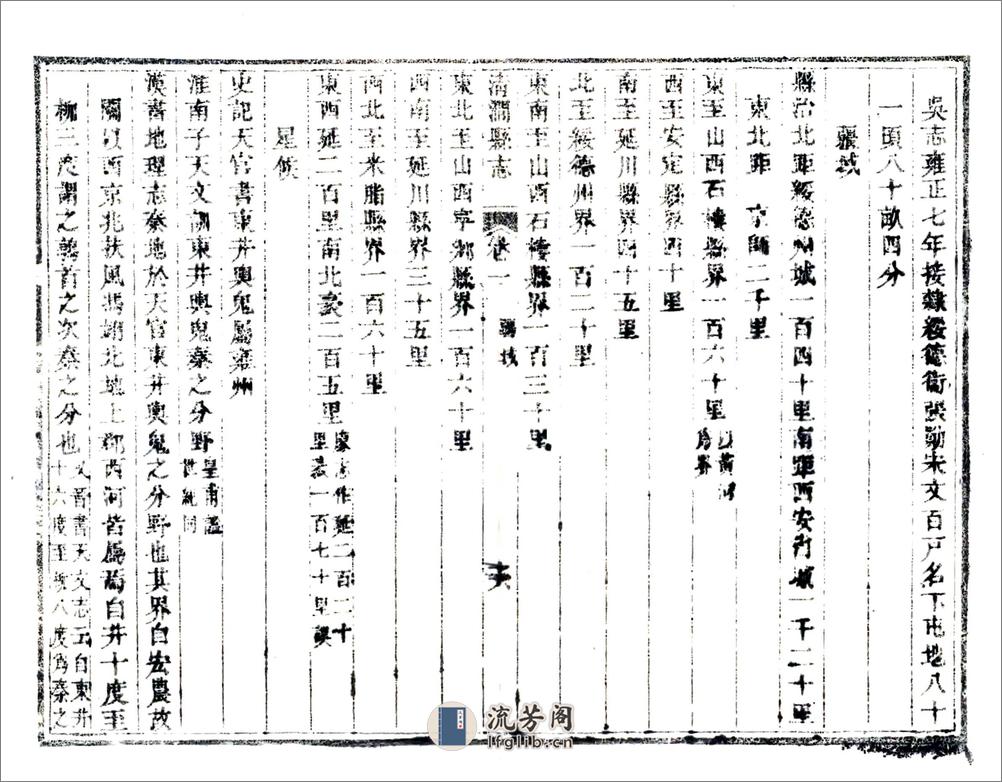 吳志雍正七年接隸綏德衛張勒宋文百戶名下屯地八十
一頃八十畝四分
疆域
縣治北距綏德州城一百四十里南距西安府城一千二十里
東北距 京師二千里
東至山西石樓縣界一百六十里以黃河爲界
西至安定縣界四十里
南至延川縣界四十五里
北至綏德州界一百二十里
東南至山西石樓縣界一百三十里
清澗縣志 卷一 疆域
東北至山西寧鄉縣界一百六十里
西南至延川縣界三十五里
西北至米脂縣界一百六十里
東西延二百里南北袤二百五里 志作延二百二十里袤一百七十里誤
星候
史記天官書東井輿鬼屬雍州
淮南子天文訓東井輿鬼秦之分野皇甫謐世紀同
漢書地理志秦地於天官東井輿鬼之分野也其界自宏農故
關以西京兆扶風馮翊北地上郡西河皆屬焉自井十度至
柳三度謂之鶉首之次秦之分也又晉書天文志云自東井十六度至柳八度爲秦之
流芳阁
lfglib.cn